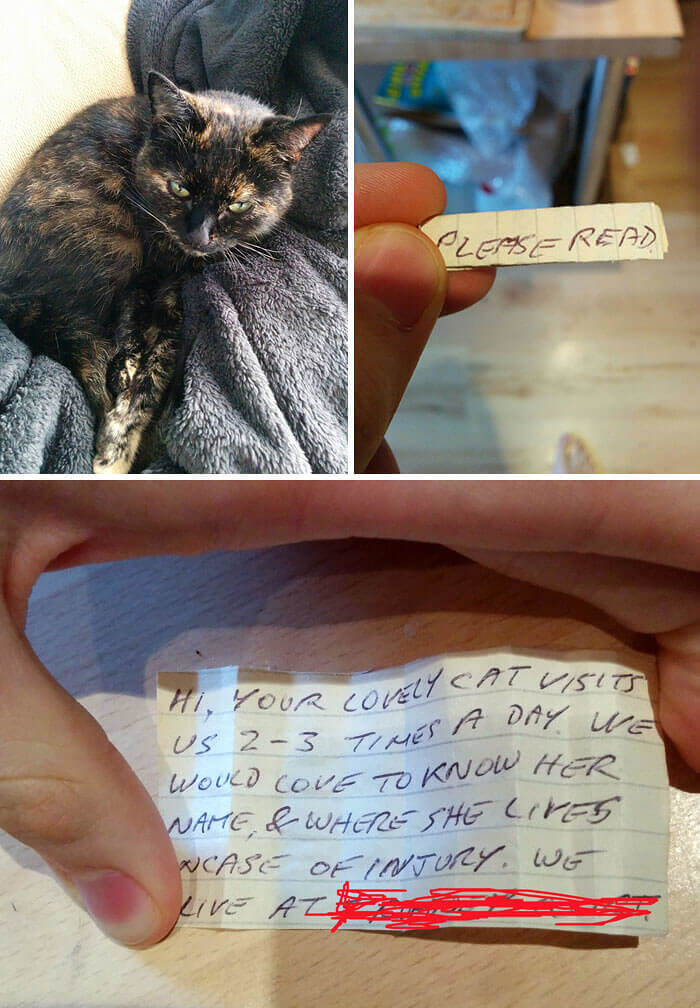 PLEASE READ.
HI, YOUR LOVELY CAT VISITS
US 2-3 TIMES A DAY. WE
WOULD LOVE TO KNOW HER
NAME, & WHERE SHE LIVES
NCASE OF INJURY. WE
LIVE AT